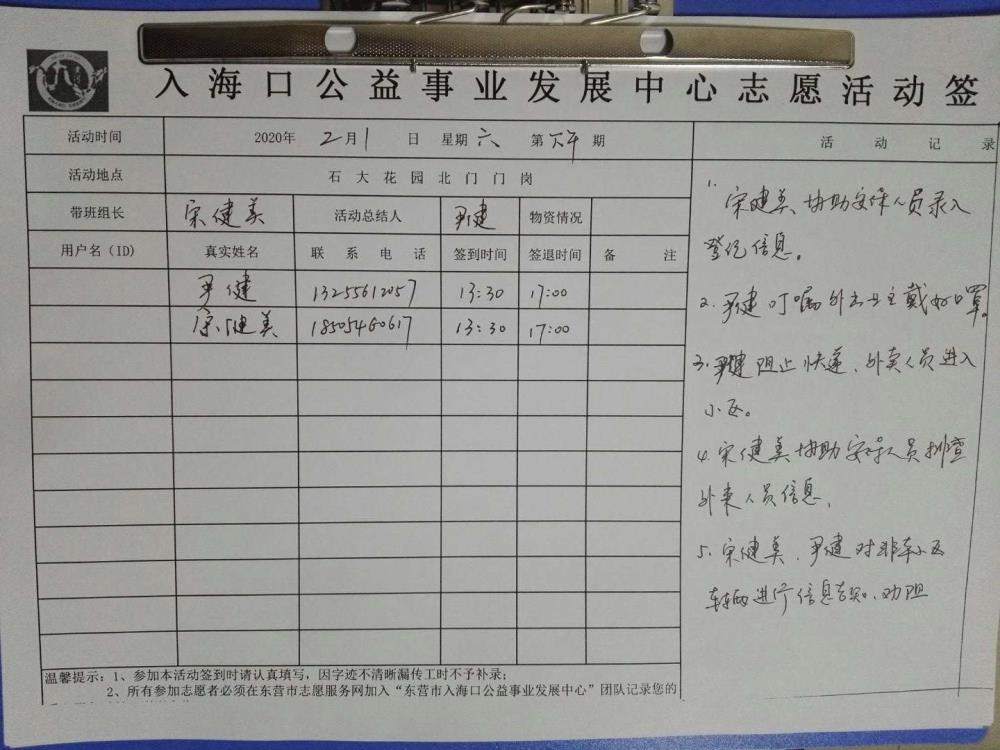 入海口公益事业发展中心志愿活动签
活动时间 2020年 2月1 日 星期六 第下午期 活动记录
活动地点 石大花园北门门岗
带班组长 宋健美 活动总结人 尹健 物资情况
用户名(ID) 真实姓名 联系电话 签到时间 签退时间 备注
尹健 13255612057 13:30 17:00
宋健美 18505460617 13:30 17:00
1. 宋健美、协助安保人员录入
登记信息。
2. 尹健叮嘱外出业主戴好口罩。
3. 尹健阻止快递、外卖人员进入
小区。
4. 宋健美协助安保人员排查
外来人员信息。
5. 宋健美、尹健对非本小区
车辆进行信息告知、劝阻
温馨提示:1、参加本活动签到时请认真填写,因字迹不清晰漏传工时不予补录;
2、所有参加志愿者必须在东营市志愿服务网加入“东营市入海口公益事业发展中心”团队记录您的